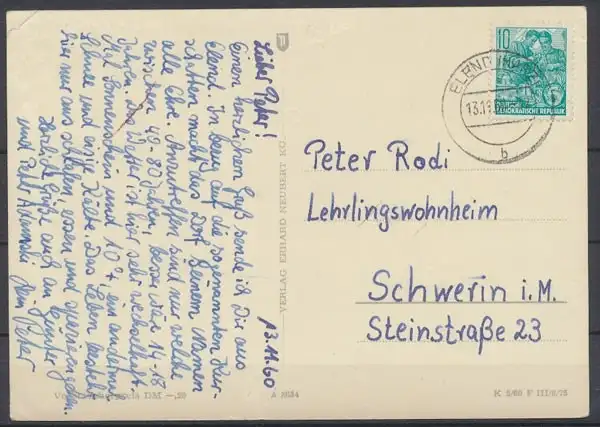 Lieber Peter!
13.11.60
Einen herzlichen Gruß sende ich Dir aus
Elend. In bezug auf die sogenannten Kur-
schatten macht das Dorf seinem Namen
alle Ehre. Anzutreffen sind nur welche
zwischen 49-80 Jahren, besser wär 14-18
Jahren. Das Wetter ist hier sehr wechselhaft.
Mal Sonnenschein und 10°+, ein andermal
Schnee und eisige Kälte. Das Leben besteht
hier nur aus schlafen, essen und spazierengehen.
Herzliche Grüße auch an Günter
und Peter
Dein Peter
VERLAG ERHARD NEUBERT KG
DM -,20
A 8654
K 5/60 F III/6/75
10
DEUTSCHE
DEMOKRATISCHE REPUBLIK
ELEND
13.11.
b
Peter Rodi
Lehrlingswohnheim
Schwerin i.M.
Steinstraße 23